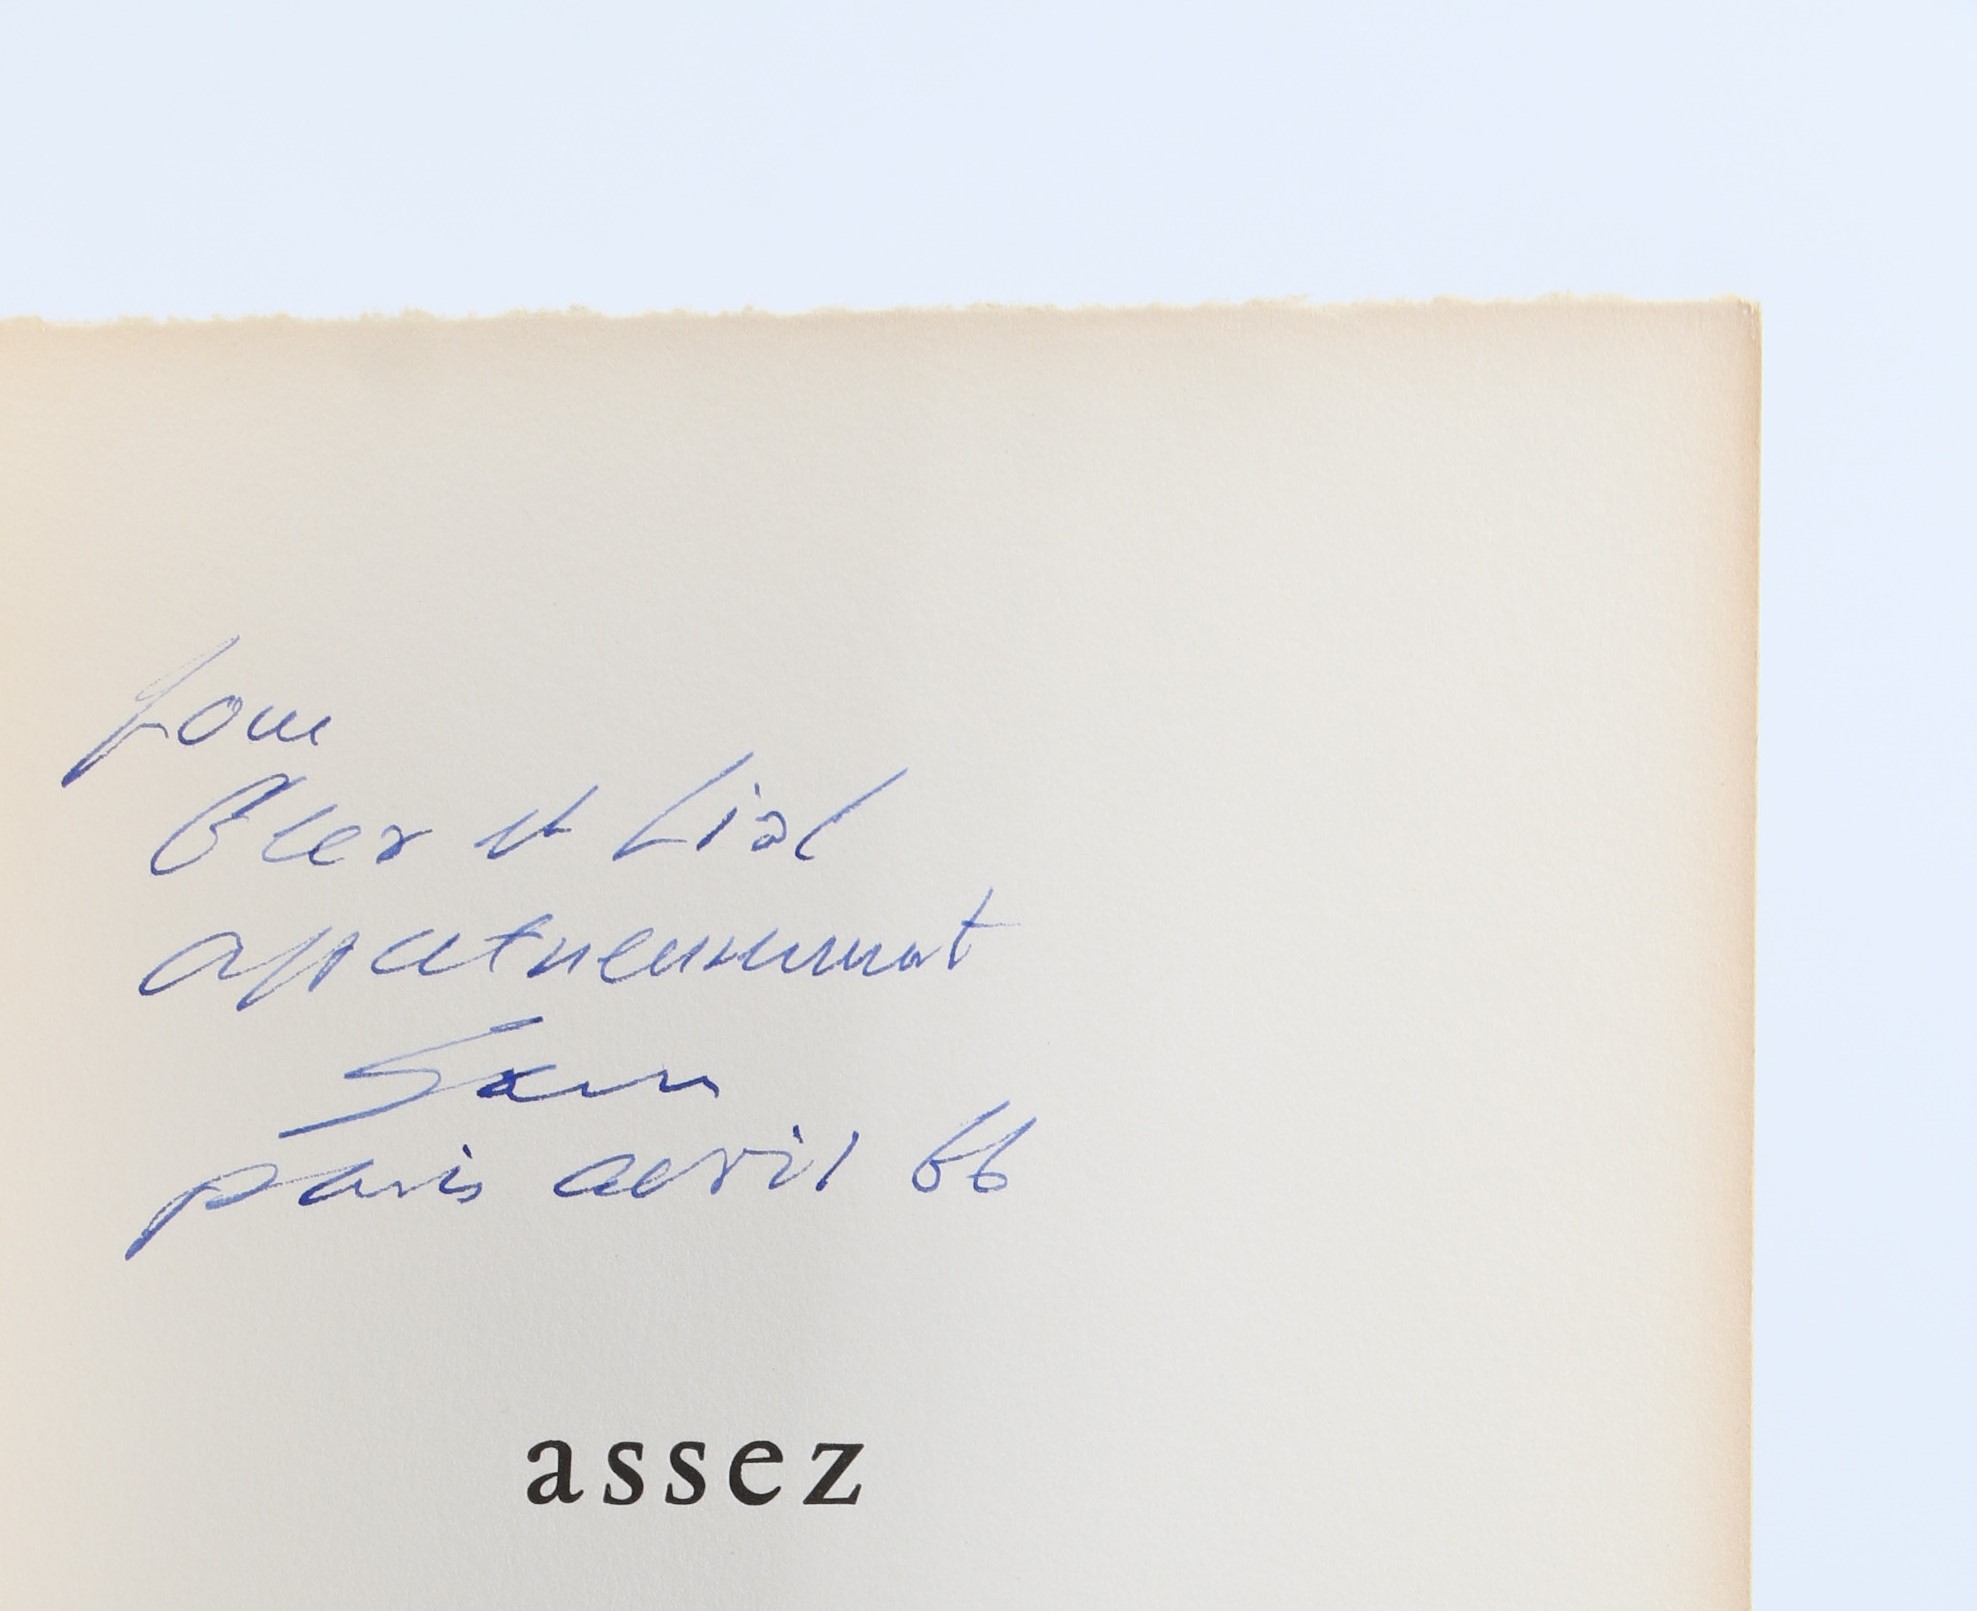 Pour
et Lisl
affectueusement
Sam
Paris avril 66
assez